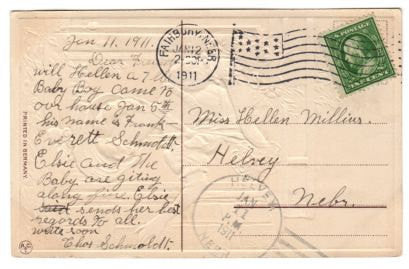 Jan 11, 1911.
Dear Friend
will Hellen a 7 lb
Baby Boy Come to
our house Jan 5th
his name is Frank
Everett Schmoldt.
Elsie and the
Baby are giting
along fine. Elsie
sends her best
regards to all.
write soon
Chas Schmoldt.
PRINTED IN GERMANY
FAIRBURY, NEBR.
JAN 12
1911
U.S. POSTAGE
ONE CENT
Miss Hellen Millius.
Helvey
Nebr.
HELVEY
JAN
12
P.M.
1911
NEBR.